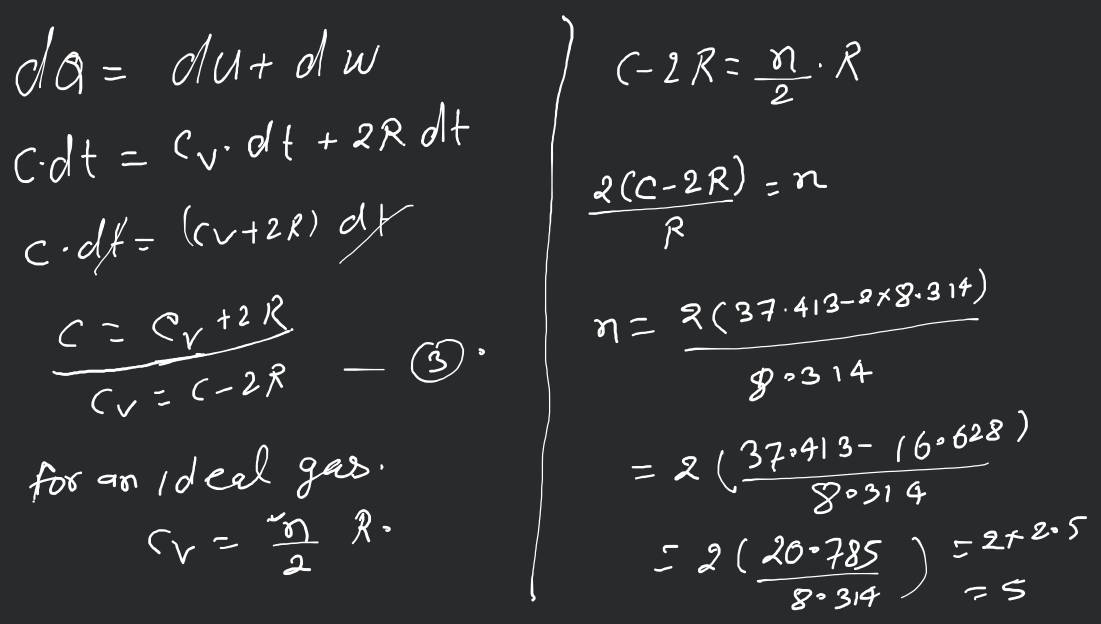 dQ = du + dw
C·dt = Cv·dt + 2R dt
C·dt = (Cv+2R) dt
C = Cv + 2R
Cv = C - 2R — ③.
for an ideal gas.
Cv = n/2 R.
C-2R = n/2 · R
2(C-2R)/R = n
n = 2(37.413-2×8.314)/8.314
= 2(37.413 - 16.628)/8.314
= 2(20.785/8.314) = 2×2.5
= 5